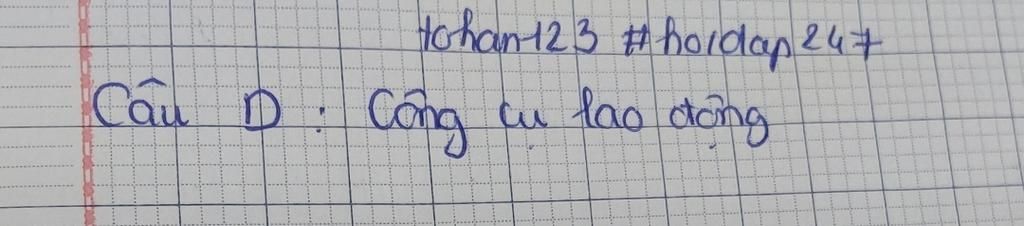 tohan123 #hoidap247
Câu D : Công cụ lao động